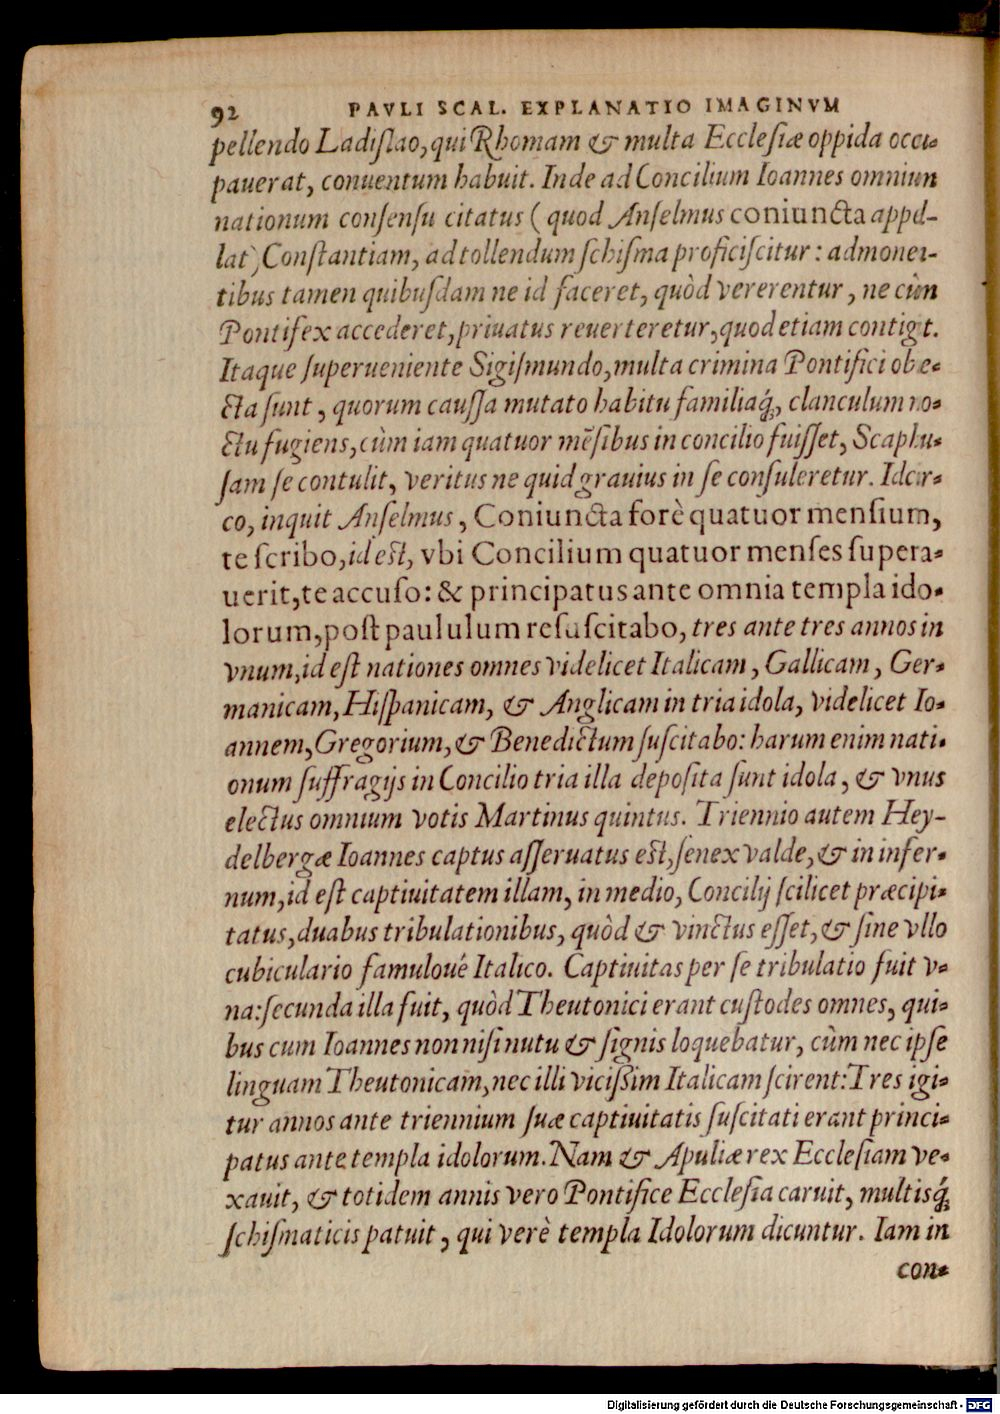 92 PAVLI SCAL. EXPLANATIO IMAGINVM
pellendo Ladiſlao, qui Rhomam & multa Eccleſiæ oppida occu-
pauerat, conuentum habuit. Inde ad Concilium Ioannes omnium
nationum conſenſu citatus (quod Anſelmus coniuncta appel-
lat) Conſtantiam, ad tollendum ſchiſma proficiſcitur: admonen-
tibus tamen quibuſdam ne id faceret, quòd vererentur, ne cùm
Pontifex accederet, priuatus reuerteretur, quod etiam contigit.
Itaque ſuperueniente Sigiſmundo, multa crimina Pontifici obie-
cta ſunt, quorum cauſſa mutato habitu familiaq́, clanculum no-
ctu fugiens, cùm iam quatuor mẽſibus in concilio fuiſſet, Scaphu-
ſam ſe contulit, veritus ne quid grauius in ſe conſuleretur. Idcir-
co, inquit Anſelmus, Coniuncta forè quatuor menſium,
te ſcribo, id est, vbi Concilium quatuor menſes ſupera-
uerit, te accuſo: & principatus ante omnia templa ido-
lorum, poſt paululum reſuſcitabo, tres ante tres annos in
vnum, id eſt nationes omnes videlicet Italicam, Gallicam, Ger-
manicam, Hiſpanicam, & Anglicam in tria idola, videlicet Io-
annem, Gregorium, & Benedictum ſuſcitabo: harum enim nati-
onum ſuffragijs in Concilio tria illa depoſita ſunt idola, & vnus
electus omnium votis Martinus quintus. Triennio autem Hey-
delbergæ Ioannes captus aſſeruatus est, ſenex valde, & in infer-
num, id eſt captiuitatem illam, in medio, Concilij ſcilicet præcipi-
tatus, duabus tribulationibus, quòd & vinctus eſſet, & ſine vllo
cubiculario famuloué Italico. Captiuitas per ſe tribulatio fuit v-
na: ſecunda illa fuit, quòd Theutonici erant cuſtodes omnes, qui-
bus cum Ioannes non niſi nutu & ſignis loquebatur, cùm nec ipſe
linguam Theutonicam, nec illi viciſſim Italicam ſcirent: Tres igi-
tur annos ante triennium ſuæ captiuitatis ſuſcitati erant princi-
patus ante templa idolorum. Nam & Apuliæ rex Eccleſiam ve-
xauit, & totidem annis vero Pontifice Eccleſia caruit, multisq́
ſchiſmaticis patuit, qui verè templa Idolorum dicuntur. Iam in
con-
Digitalisierung gefördert durch die Deutsche Forschungsgemeinschaft - DFG